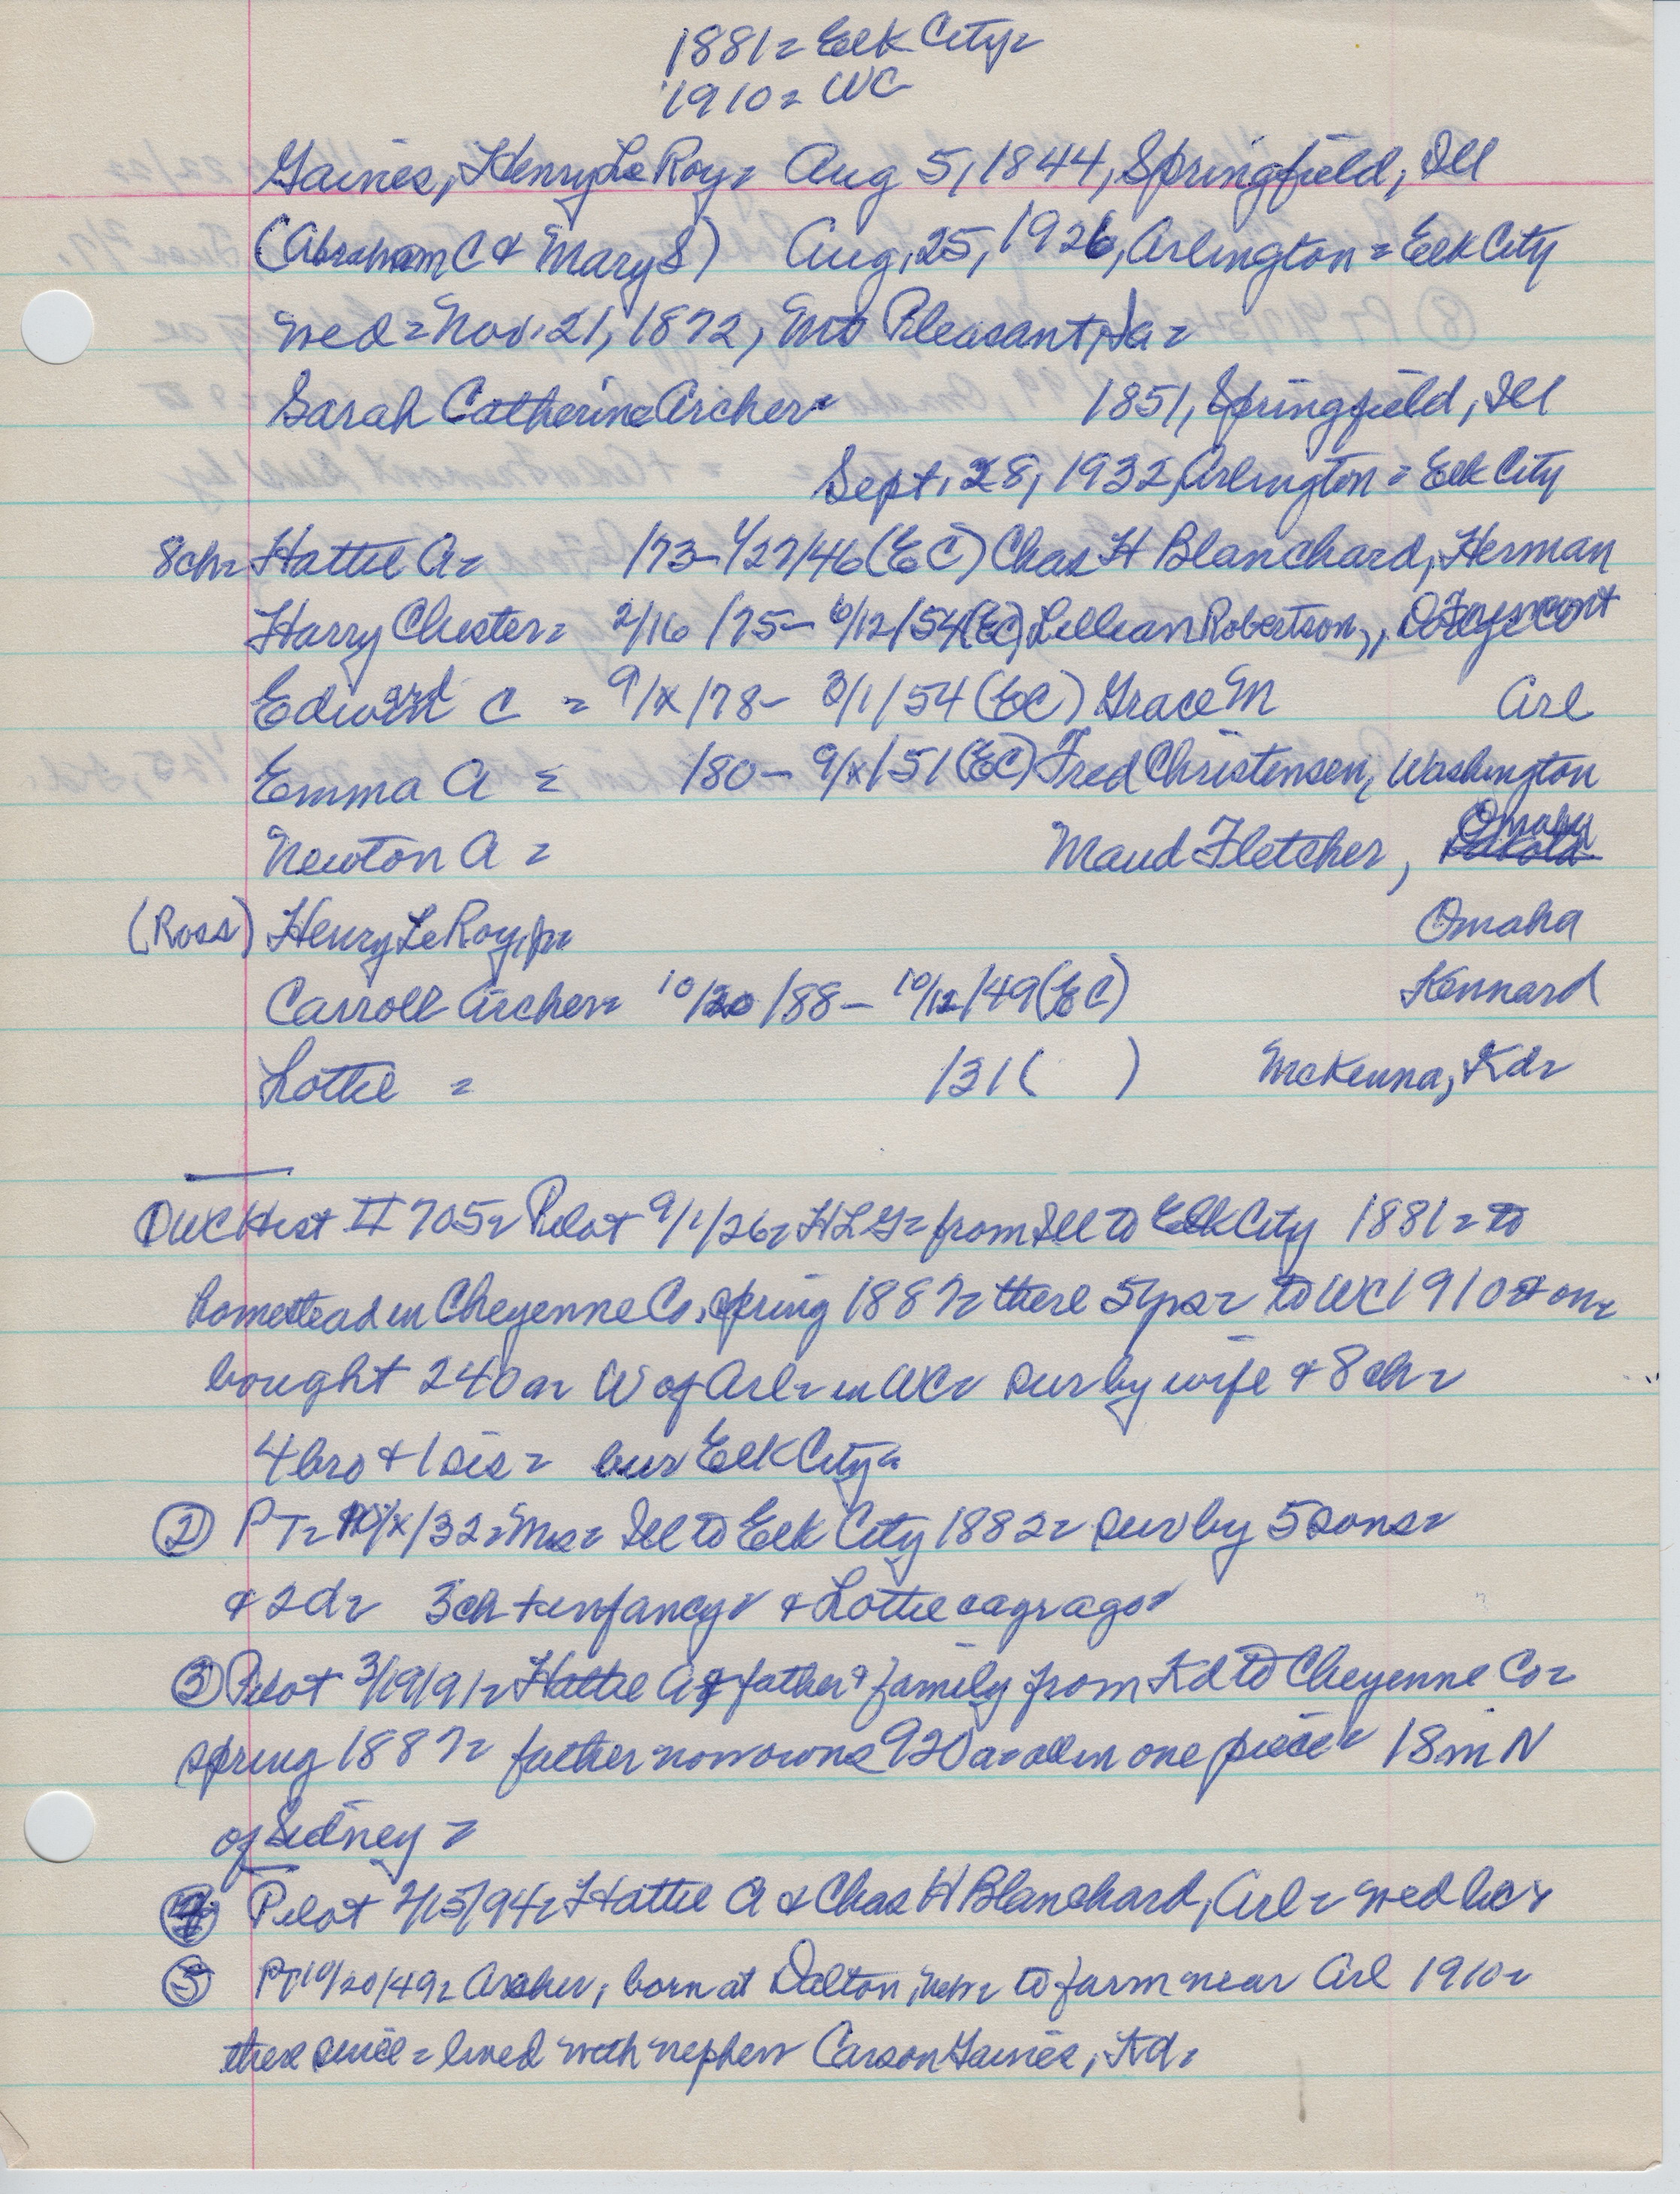 1881= Elk City=
1910= WC
Gaines, Henry Le Roy= Aug 5, 1844, Springfield, Ill
(Abraham C & Mary S) Aug, 25, 1926, Arlington = Elk City
wed = Nov. 21, 1872, Mt Pleasant, Ia =
Sarah Catherine Archer= 1851, Springfield, Ill
Sept, 28, 1932, Arlington = Elk City
8ch= Hattie A= /73- 1/27/46 (EC) Chas H Blanchard, Herman
Harry Chester= 2/16/75- 6/12/54 (EC) Lillian Robertson,
Edward C = 9/x/78- 3/1/54 (EC) Grace M Arl
Emma A = /80- 9/x/51 (EC) Fred Christensen, Washington
Newton A = Maud Fletcher, Omaha
(Ross) Henry Le Roy, jr= Omaha
Carroll Archer= 10/20/88- 10/12/49 (EC) Kennard
Lottie = /31 ( ) McKenna, Fd=
① WC Hist II 705= Pilot 9/1/26= HLG= from Ill to Elk City 1881= to
homestead in Cheyenne Co. spring 1887= there 5 yrs= to WC 1910 & on=
bought 240 a= W of Arl= in WC= sur by wife & 8 ch=
4 bro & 1 sis= bur Elk City=
② PT= 10/x/32= Mrs= Ill to Elk City 1882= sur by 5 sons=
& 2 d= 3 ch + infancy= & Lottie a yr ago=
③ Pilot 3/19/91= Hattie A father & family from Fd to Cheyenne Co=
spring 1887= father now owns 920 a= all in one piece= 18 m N
of Sidney =
④ Pilot 2/15/94= Hattie A & Chas H Blanchard, Arl= wed lic=
⑤ PT 10/20/49= Archer, born at Dalton, Neb= to farm near Arl 1910=
there since = lived with nephew Carson Gaines, Fd=